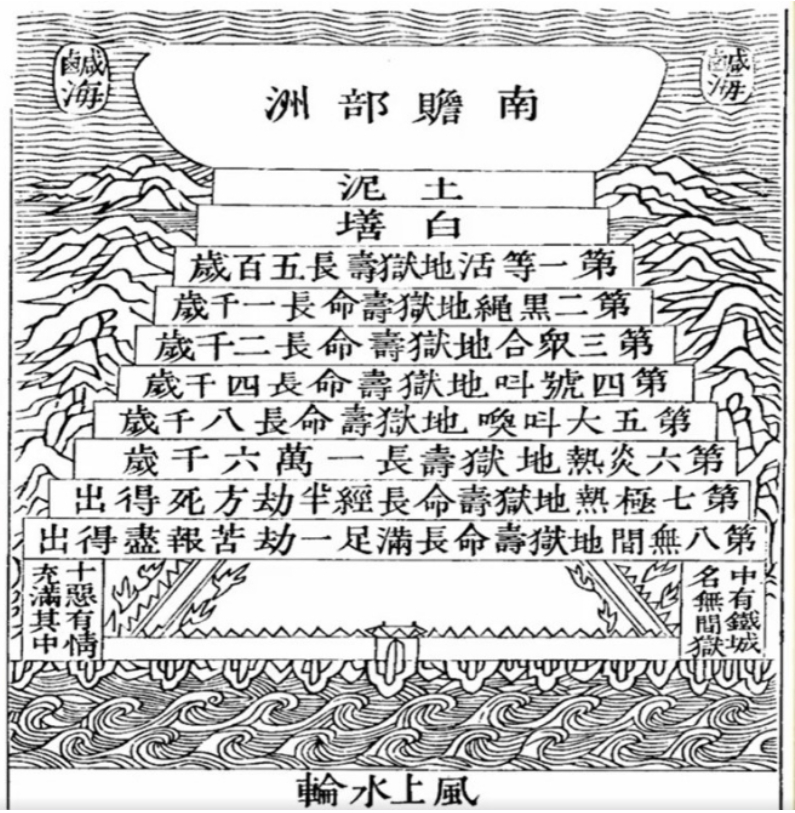 鹹海
南贍部洲
鹹海
土泥
白墡
第一等活地獄壽長五百歲
第二黑繩地獄壽命長一千歲
第三衆合地獄壽命長二千歲
第四號叫地獄壽命長四千歲
第五大叫喚地獄壽命長八千歲
第六炎熱地獄壽長一萬六千歲
第七極熱地獄壽命長經半劫方死得出
第八無間地獄壽命長滿足一劫苦報盡得出
中有鐵城
名無間獄
十惡有情
充滿其中
風上水輪